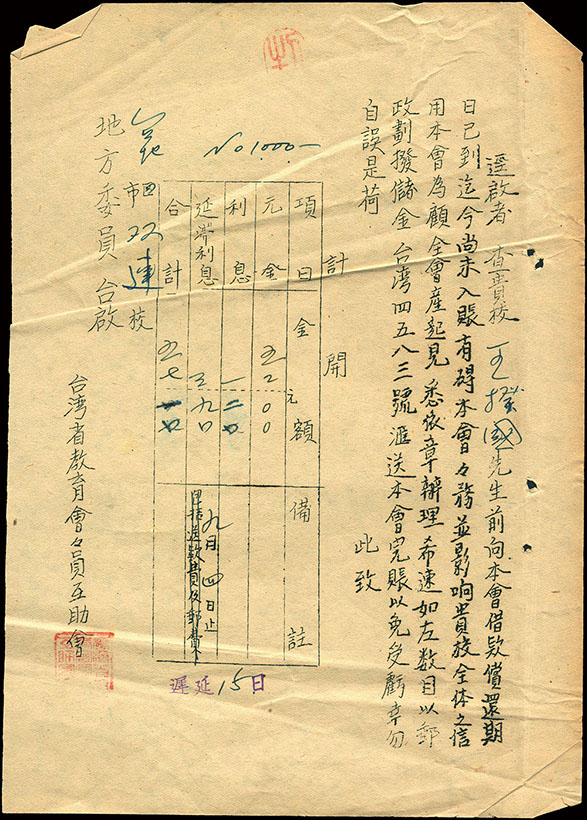 逕啟者 查貴校 王撥國先生前向本會借款償還期
日已到迄今尚未入賬有碍本會々務並影响貴校全体之信
用本會為顧全會產起見 悉依章辦理 希速如左數目以郵
政劃撥儲金 台湾四五八三號 滙送本會完賬以免受虧幸勿
自誤是荷
此致
計 開
項目 金額 備註
元
元金 五二〇〇
利息 一二〇
延滯利息 三九〇 九月四日止
合計
No 1000-
遲延15日
市 双連校
地方委員 台啟
台湾省教育會々員互助會